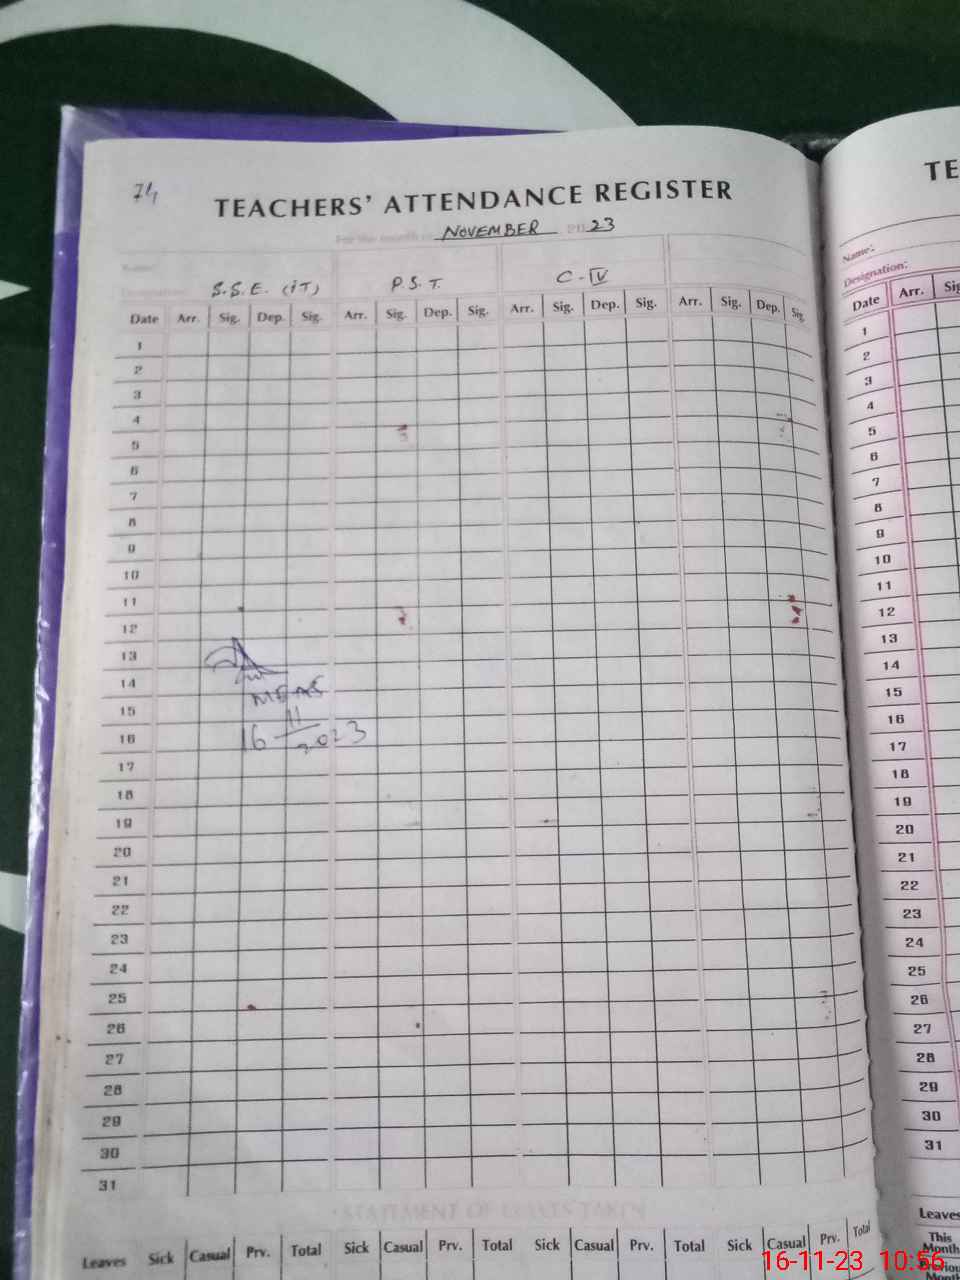 74
TEACHERS' ATTENDANCE REGISTER
For the month of NOVEMBER 2023
S.S.E. (iT) P.S.T. C-IV
Date Arr. Sig. Dep. Sig. Arr. Sig. Dep. Sig. Arr. Sig. Dep. Sig. Arr. Sig. Dep. Sig.
1
2
3
4
5
6
7
8
9
10
11
12
13
14
15
16
17
18
19
20
21
22
23
24
25
26
27
28
29
30
31
MEAS
16 11
2023
STATEMENT OF LEAVES TAKEN
Leaves Sick Casual Prv. Total Sick Casual Prv. Total Sick Casual Prv. Total Sick Casual Prv. Total
TE
Name:
Designation:
Date Arr. Sig
1
2
3
4
5
6
7
8
9
10
11
12
13
14
15
16
17
18
19
20
21
22
23
24
25
26
27
28
29
30
31
Leaves
This
Month
16-11-23 10:56